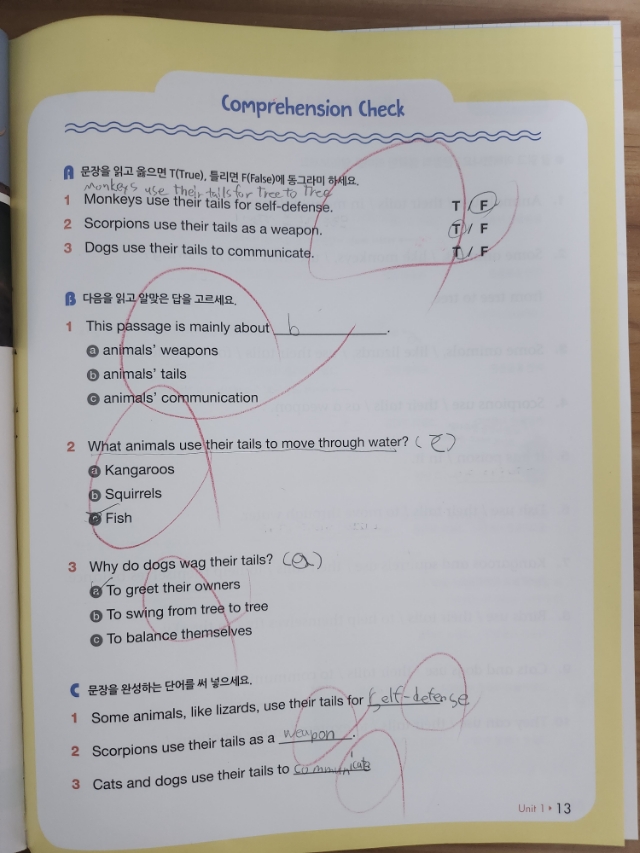 Comprehension Check
A 문장을 읽고 옳으면 T(True), 틀리면 F(False)에 동그라미 하세요.
monkeys use their tails for tree to tree
1 Monkeys use their tails for self-defense. T / F
2 Scorpions use their tails as a weapon. T / F
3 Dogs use their tails to communicate. T / F
B 다음을 읽고 알맞은 답을 고르세요.
1 This passage is mainly about b.
a animals' weapons
b animals' tails
c animals' communication
2 What animals use their tails to move through water? (c)
a Kangaroos
b Squirrels
c Fish
3 Why do dogs wag their tails? (a)
a To greet their owners
b To swing from tree to tree
c To balance themselves
C 문장을 완성하는 단어를 써 넣으세요.
1 Some animals, like lizards, use their tails for self-defense
2 Scorpions use their tails as a weapon.
3 Cats and dogs use their tails to communicate
Unit 1 • 13